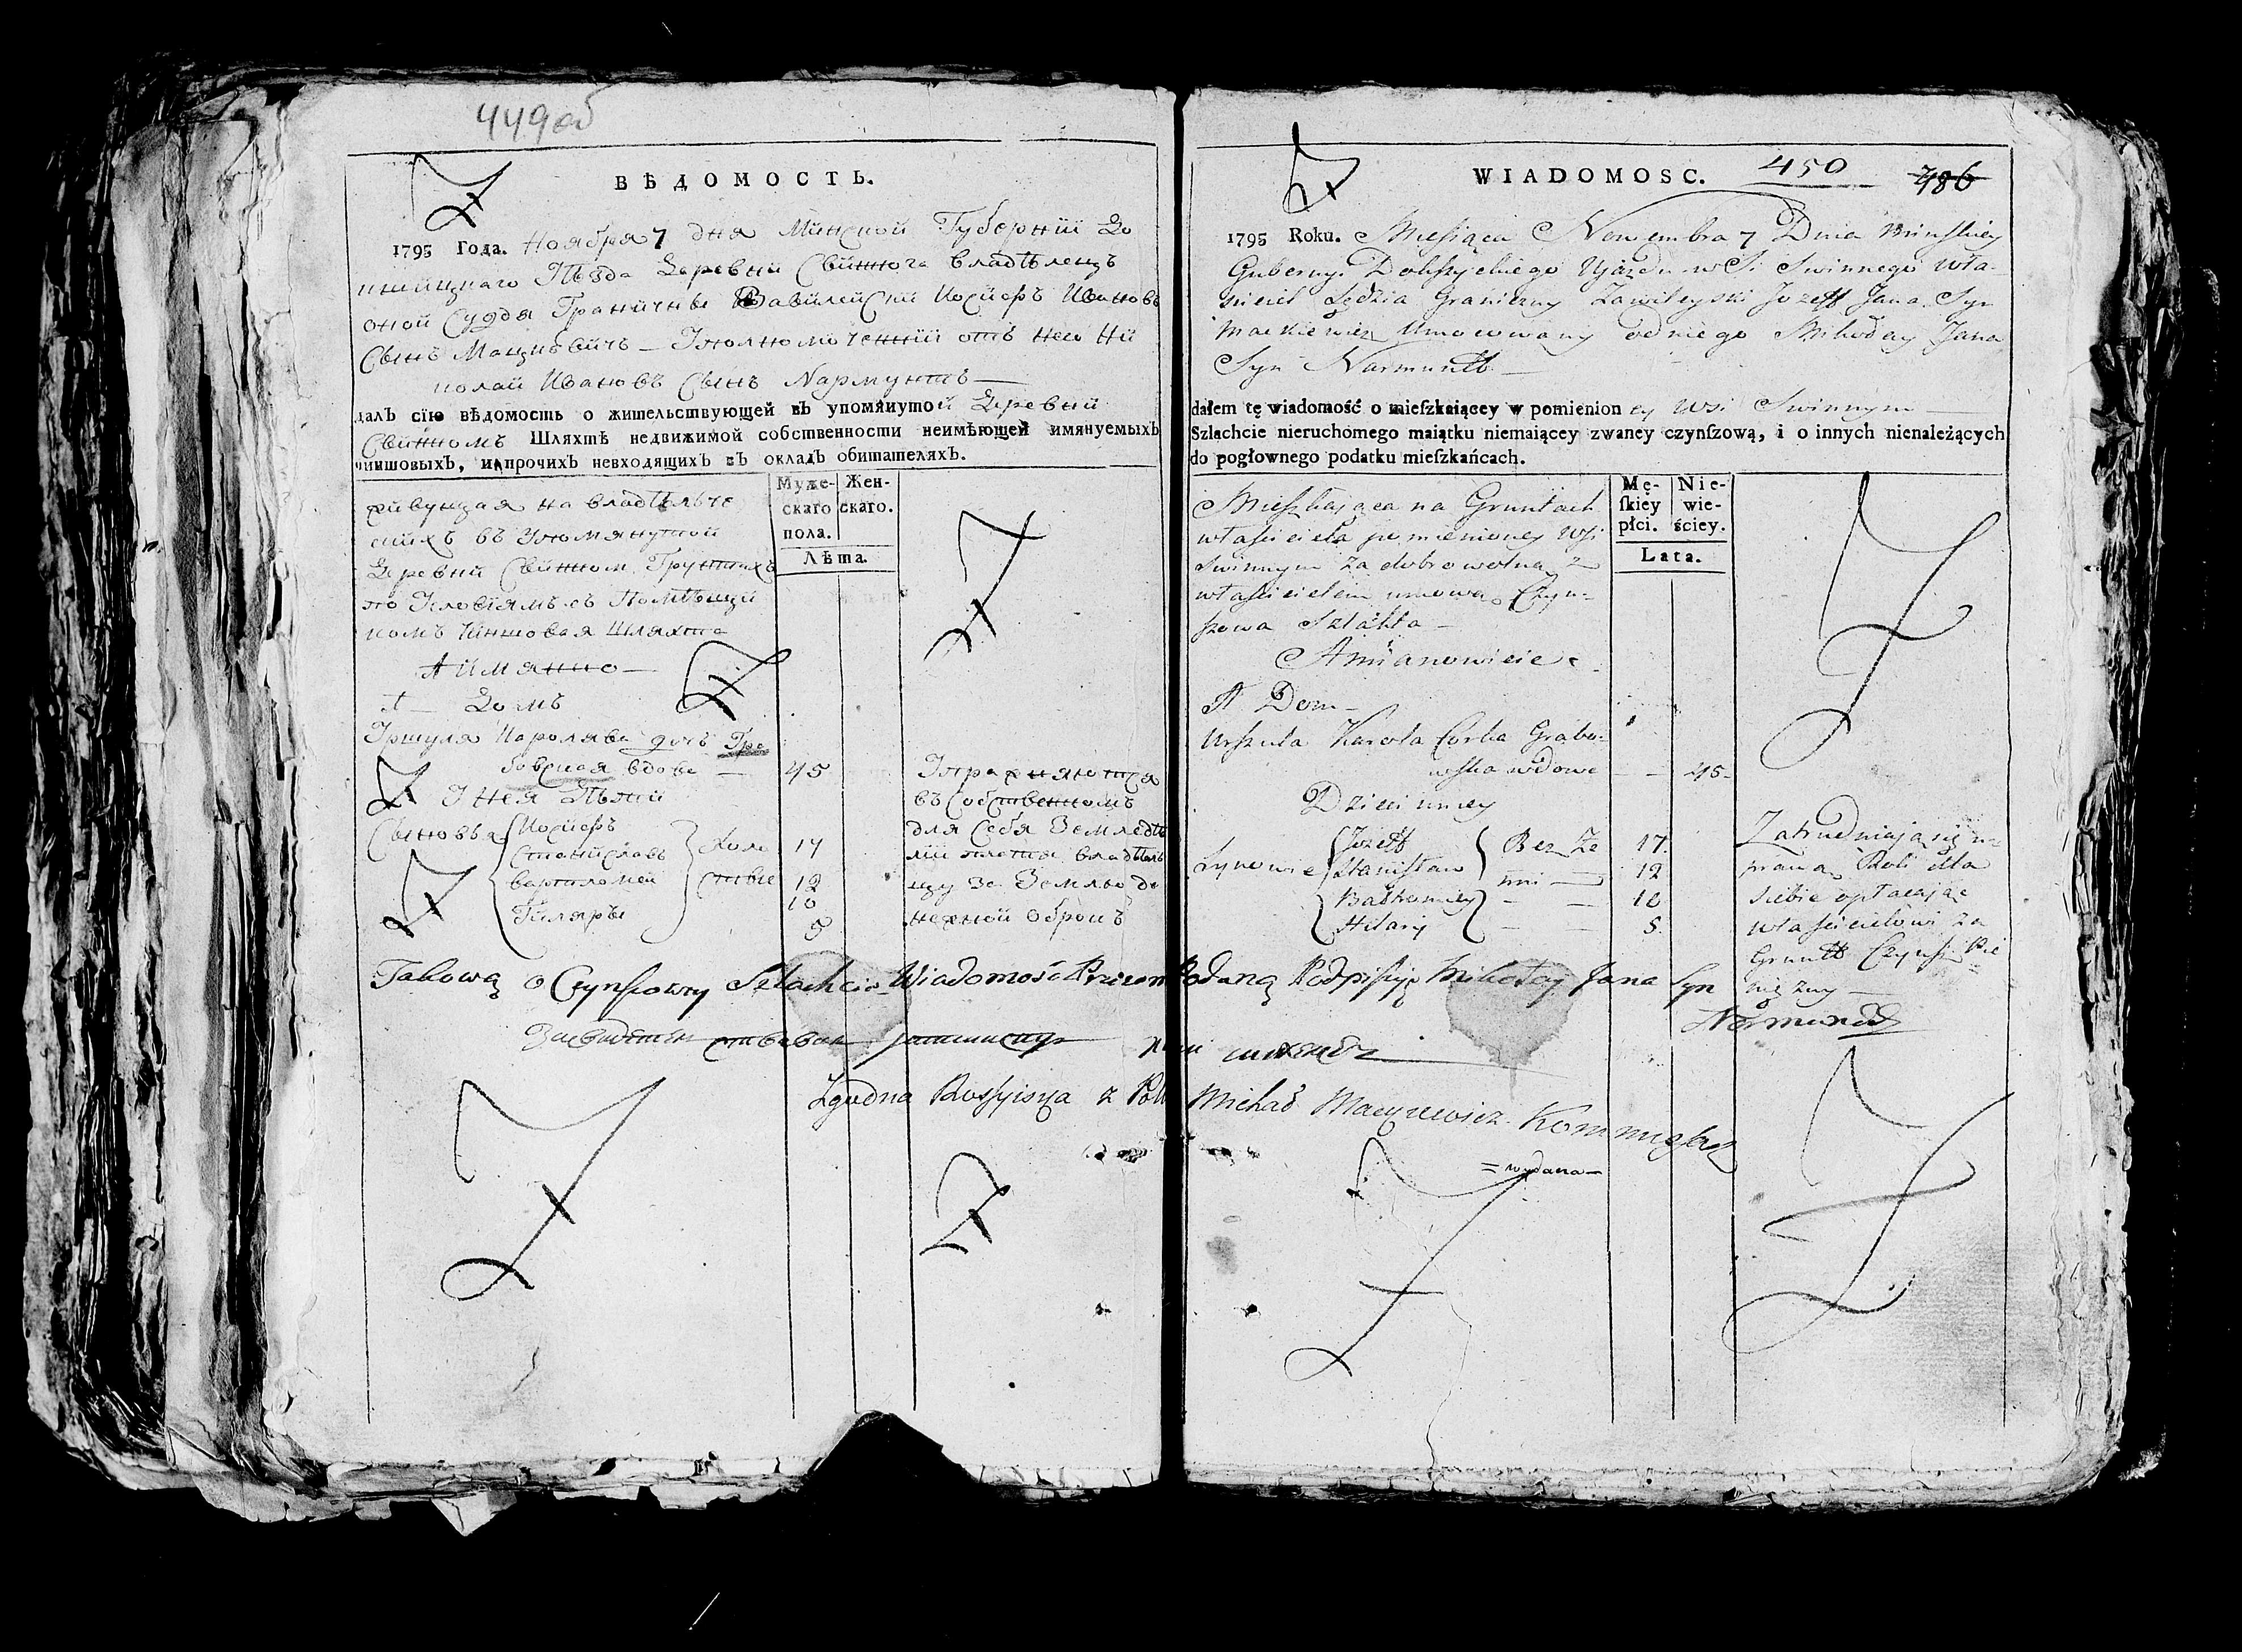 449об
ВѢДОМОСТЬ.
1795 Года. Ноября 7 дня Минской Губернїи До
кшицкаго Уѣзда Деревни Свинного владѣлецъ
оной Судья Граничны Завилейский Иосифъ Ивановъ
Сынъ Мацкевичъ — Уполномоченный отъ него Ни
колай Ивановъ Сынъ Нармунтъ —
далъ сїю вѣдомость о жительствующей въ упомянутой Деревни
Свинномъ Шляхтѣ недвижимой собственности неимѣющей имянуемыхъ
чиншовыхъ, и прочихъ невходящихъ въ окладъ обитателяхъ.
Муже-
скаго
пола.
Жен-
скаго.
Лѣта.
живущая на владѣльче
скихъ въ Упомянутой
Деревни Свинном Грунтахъ
по Условїямъ съ Помѣщи
комъ Чиншовая Шляхта
А имянно —
А — Домъ
Уршуля Каролява дочь Гра
бовская вдова — 45
У Нея Дѣти
Сыновья Иосифъ 17
Станиславъ 12
Вартломей 10
Гиляры 5
Холо
стые
Упражняются
въ собственномъ
для себя Земледѣ
лїи платя владѣль
цу за Землю де
нежной Оброкъ
WIADOMOSC. 450 786
1795 Roku. Miesiąca Nowembra 7 Dnia Minskiey
Gubernyi Dokszyckiego Ujazdu wsi Swinnego wła-
sciciel Sędzia Graniczny Zawileyski Jozeff Jana Syn
Mackiewicz Umocowany od niego Mikołay Jana
Syn Narmuntt —
dałem tę wiadomość o mieſzkaiącey w pomienioney Wsi Swinnym
Szlachcie nieruchomego maiątku niemaiącey zwaney czynſzową, i o innych nienależących
do pogłownego podatku mieſzkańcach.
Mę-
ſkiey
płci.
Nie-
wie-
ściey.
Lata.
Mieszkająca na Gruntach
własciciela pomienioney Wsi
Swinnym za dobrowolną z
włascicielem umową Czyn-
szowa Szlahta —
A mianowicie
A Dom —
Urszula Karola Corka Grabo-
wska wdowa — — 45
Dzieci u niey
Synowie Jozeff 17.
Stanisław 12
Bałtromiey — — 10
Hilary — — 5.
Bez Że
nni —
Zatrudniają się u-
prawą Roli dla
siebie opłacając
włascicielowi za
Gruntt Czynsz Pie
niężny —
Takową o Czynszowey Szlachcie Wiadomość Przezemnie Podaną Podpisuję Mikołay Jana Syn
Narmuntt
Zgodna Rossyiska z Pol Michał Macycewicz
= wydana —